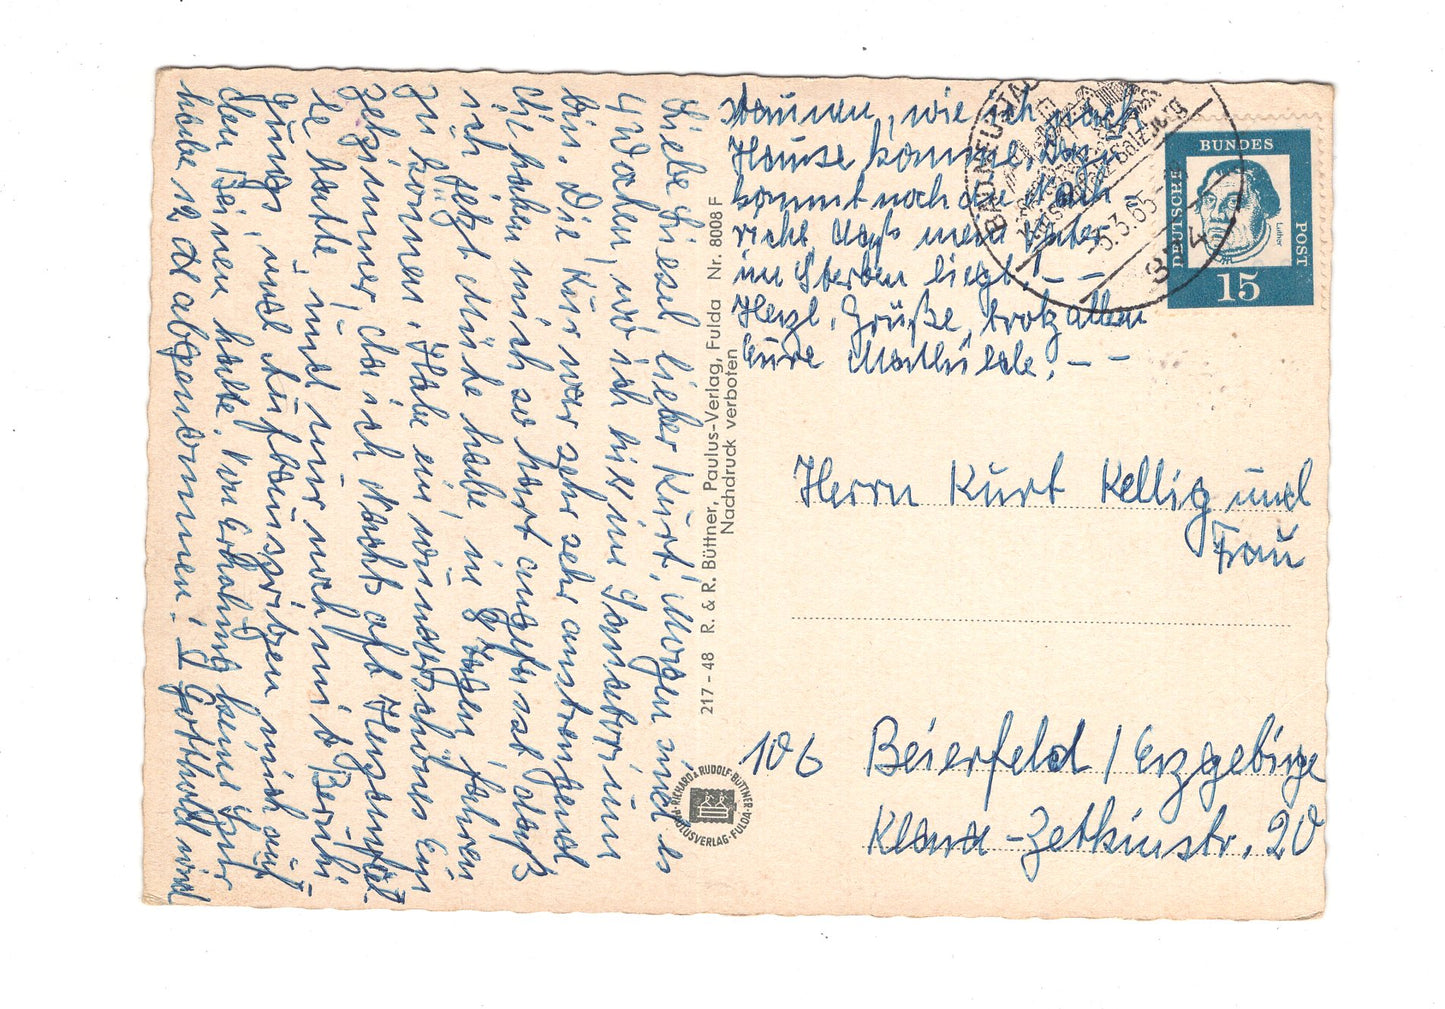 Liebe Liesel lieber Kurt, Morgen sind es
4 Wochen, wo ich hier im Sanatorium
bin. Die Kur war sehr sehr anstrengend
die haben mich so hart angefasst, daß
ich jetzt Mühe habe, in Zügen fahren
zu können. Habe ein wunderschönes Ein
zelzimmer, da ich Nachts oft Herzanfäl-
le hatte, und nur noch mit Beruhi
gungs, und Aufbauspritzen mich auf
den Beinen halte. Von Erholung keine Spur
habe 12 ℔ abgenommen! Gotthold wird
staunen, wie ich nach
Hause komme, dann
kommt noch die Nach-
richt, daß mein Vater
im Sterben liegt! – –
Herzl. Grüße, trotz allem
Eure Mathilde. – –
217 – 48 R. & R. Büttner, Paulus-Verlag, Fulda Nr. 8008 F
Nachdruck verboten
RICHARD & RUDOLF BÜTTNER
PAULUSVERLAG · FULDA
BAD NEUSTADT
5.3.65
DEUTSCHE
BUNDES
POST
Luther
15
Herrn Kurt Kellig und
Frau
106 Beierfeld / Erzgebirge
Klara-Zetkinstr. 20